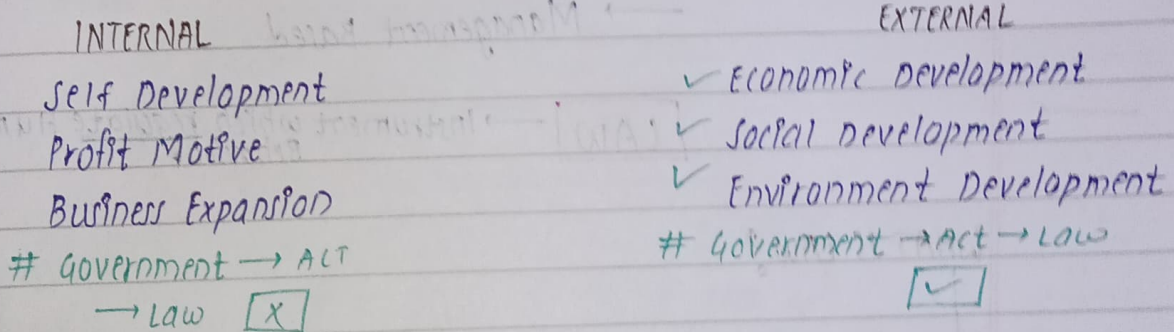 INTERNAL
Self Development
Profit Motive
Business Expansion
# Government → ACT
→ Law [x]
EXTERNAL
✓ Economic Development
✓ Social Development
✓ Environment Development
# Government → Act → Law
[✓]